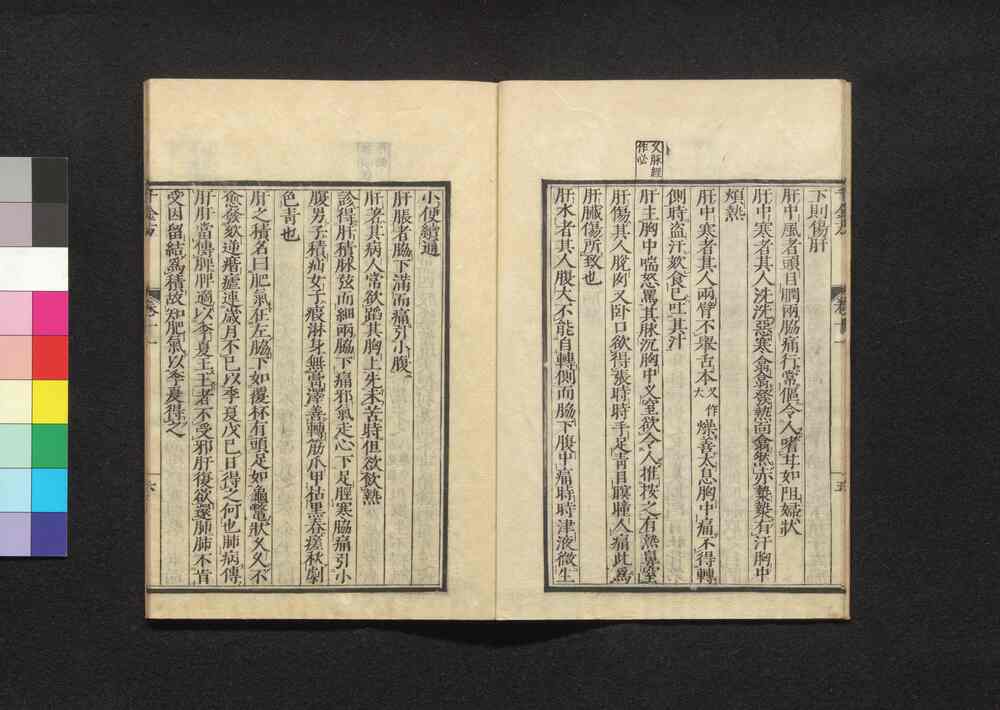 又脉經
作必
下則傷肝
肝中風者頭目瞤兩脇痛行常傴令人嗜甘如阻婦狀
肝中寒者其人洗洗惡寒翕翕發熱面翕然赤漐漐有汗胸中
煩熱
肝中寒者其人兩臂不舉舌本又作大燥善太息胸中痛不得轉
側時盜汗欬食已吐其汁
肝主胸中喘怒罵其脉沉胸中又窒欲令人推按之有熱鼻窒
肝傷其人脫肉又卧口欲得張時時手足青目瞑瞳人痛此爲
肝臟傷所致也
肝水者其人腹大不能自轉側而脇下腹中痛時時津液微生
小便續通
肝脹者脇下滿而痛引小腹
肝著其病人常欲蹈其胸上先未苦時但欲飲熱
診得肝積脉弦而細兩脇下痛邪氣走心下足脛寒脇痛引小
腹男子積疝女子瘕淋身無膏澤善轉筋爪甲枯黑春瘥秋劇
色青也
肝之積名曰肥氣在左脇下如覆杯有頭足如龜鱉狀久久不
愈發欬逆㾬瘧連歲月不已以季夏戊巳日得之何也肺病傳
肝肝當傳脾脾適以季夏王王者不受邪肝復欲還肺肺不肯
受因留結爲積故知肥氣以季夏得之